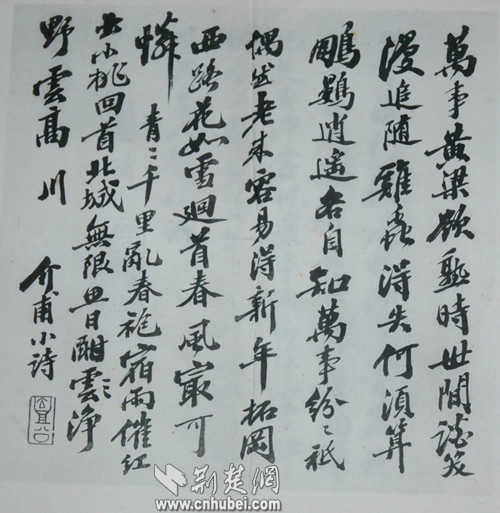 萬事黃粱欲熟時世間談笑
漫追隨雞蟲得失何須算
鵬鷃逍遙各自知萬事紛〻祇
偶然老來容易得新年柘岡
西路花如雪迴首春風最可
憐 青〻千里亂春袍宿雨催紅
出小桃回首北城無限思日酣雲淨
野雲高 川
介甫小詩
荆楚網
www.cnhubei.com